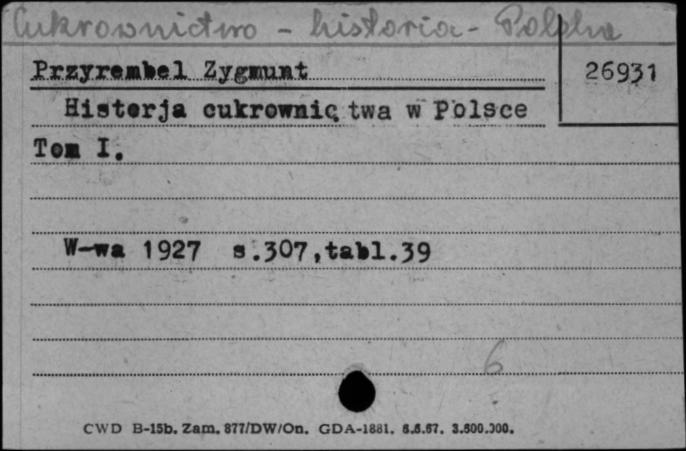 Cukrownictwo - historia - Polska
Przyrembel Zygmunt
26931
Historja cukrownictwa w Polsce
Tom I.
W-wa 1927 s.307,tabl.39
6
CWD B-15b. Zam. 877/DW/On. GDA-1881. 6.6.67. 3.500.000.